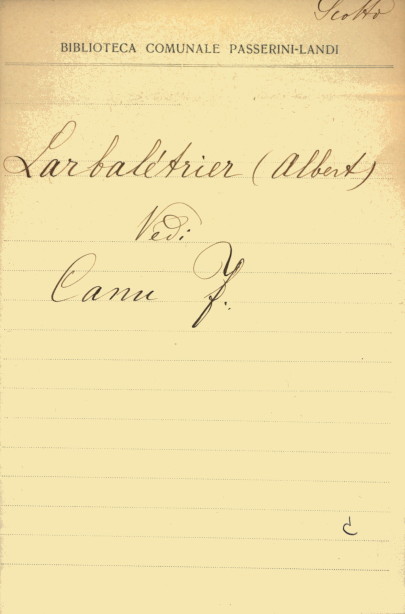 Scotto
BIBLIOTECA COMUNALE PASSERINI-LANDI
Larbalétrier (Albert)
Vedi
Canu F.